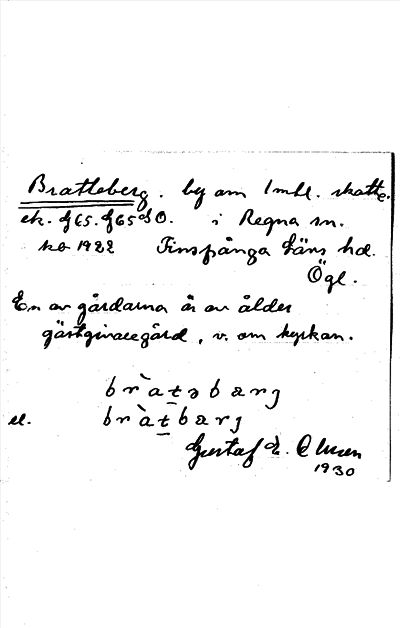 Bratteberg. by om 1 mtl. skatte.
ek. f65. f65d O. i Regna sn.
ko 1922 Finspånga läns hd.
Ögl.
En av gårdarna är av ålder
gästgivaregård, v. om kyrkan.
bràtəbærj
el. bràtbærj
Gustaf Olsson
1930